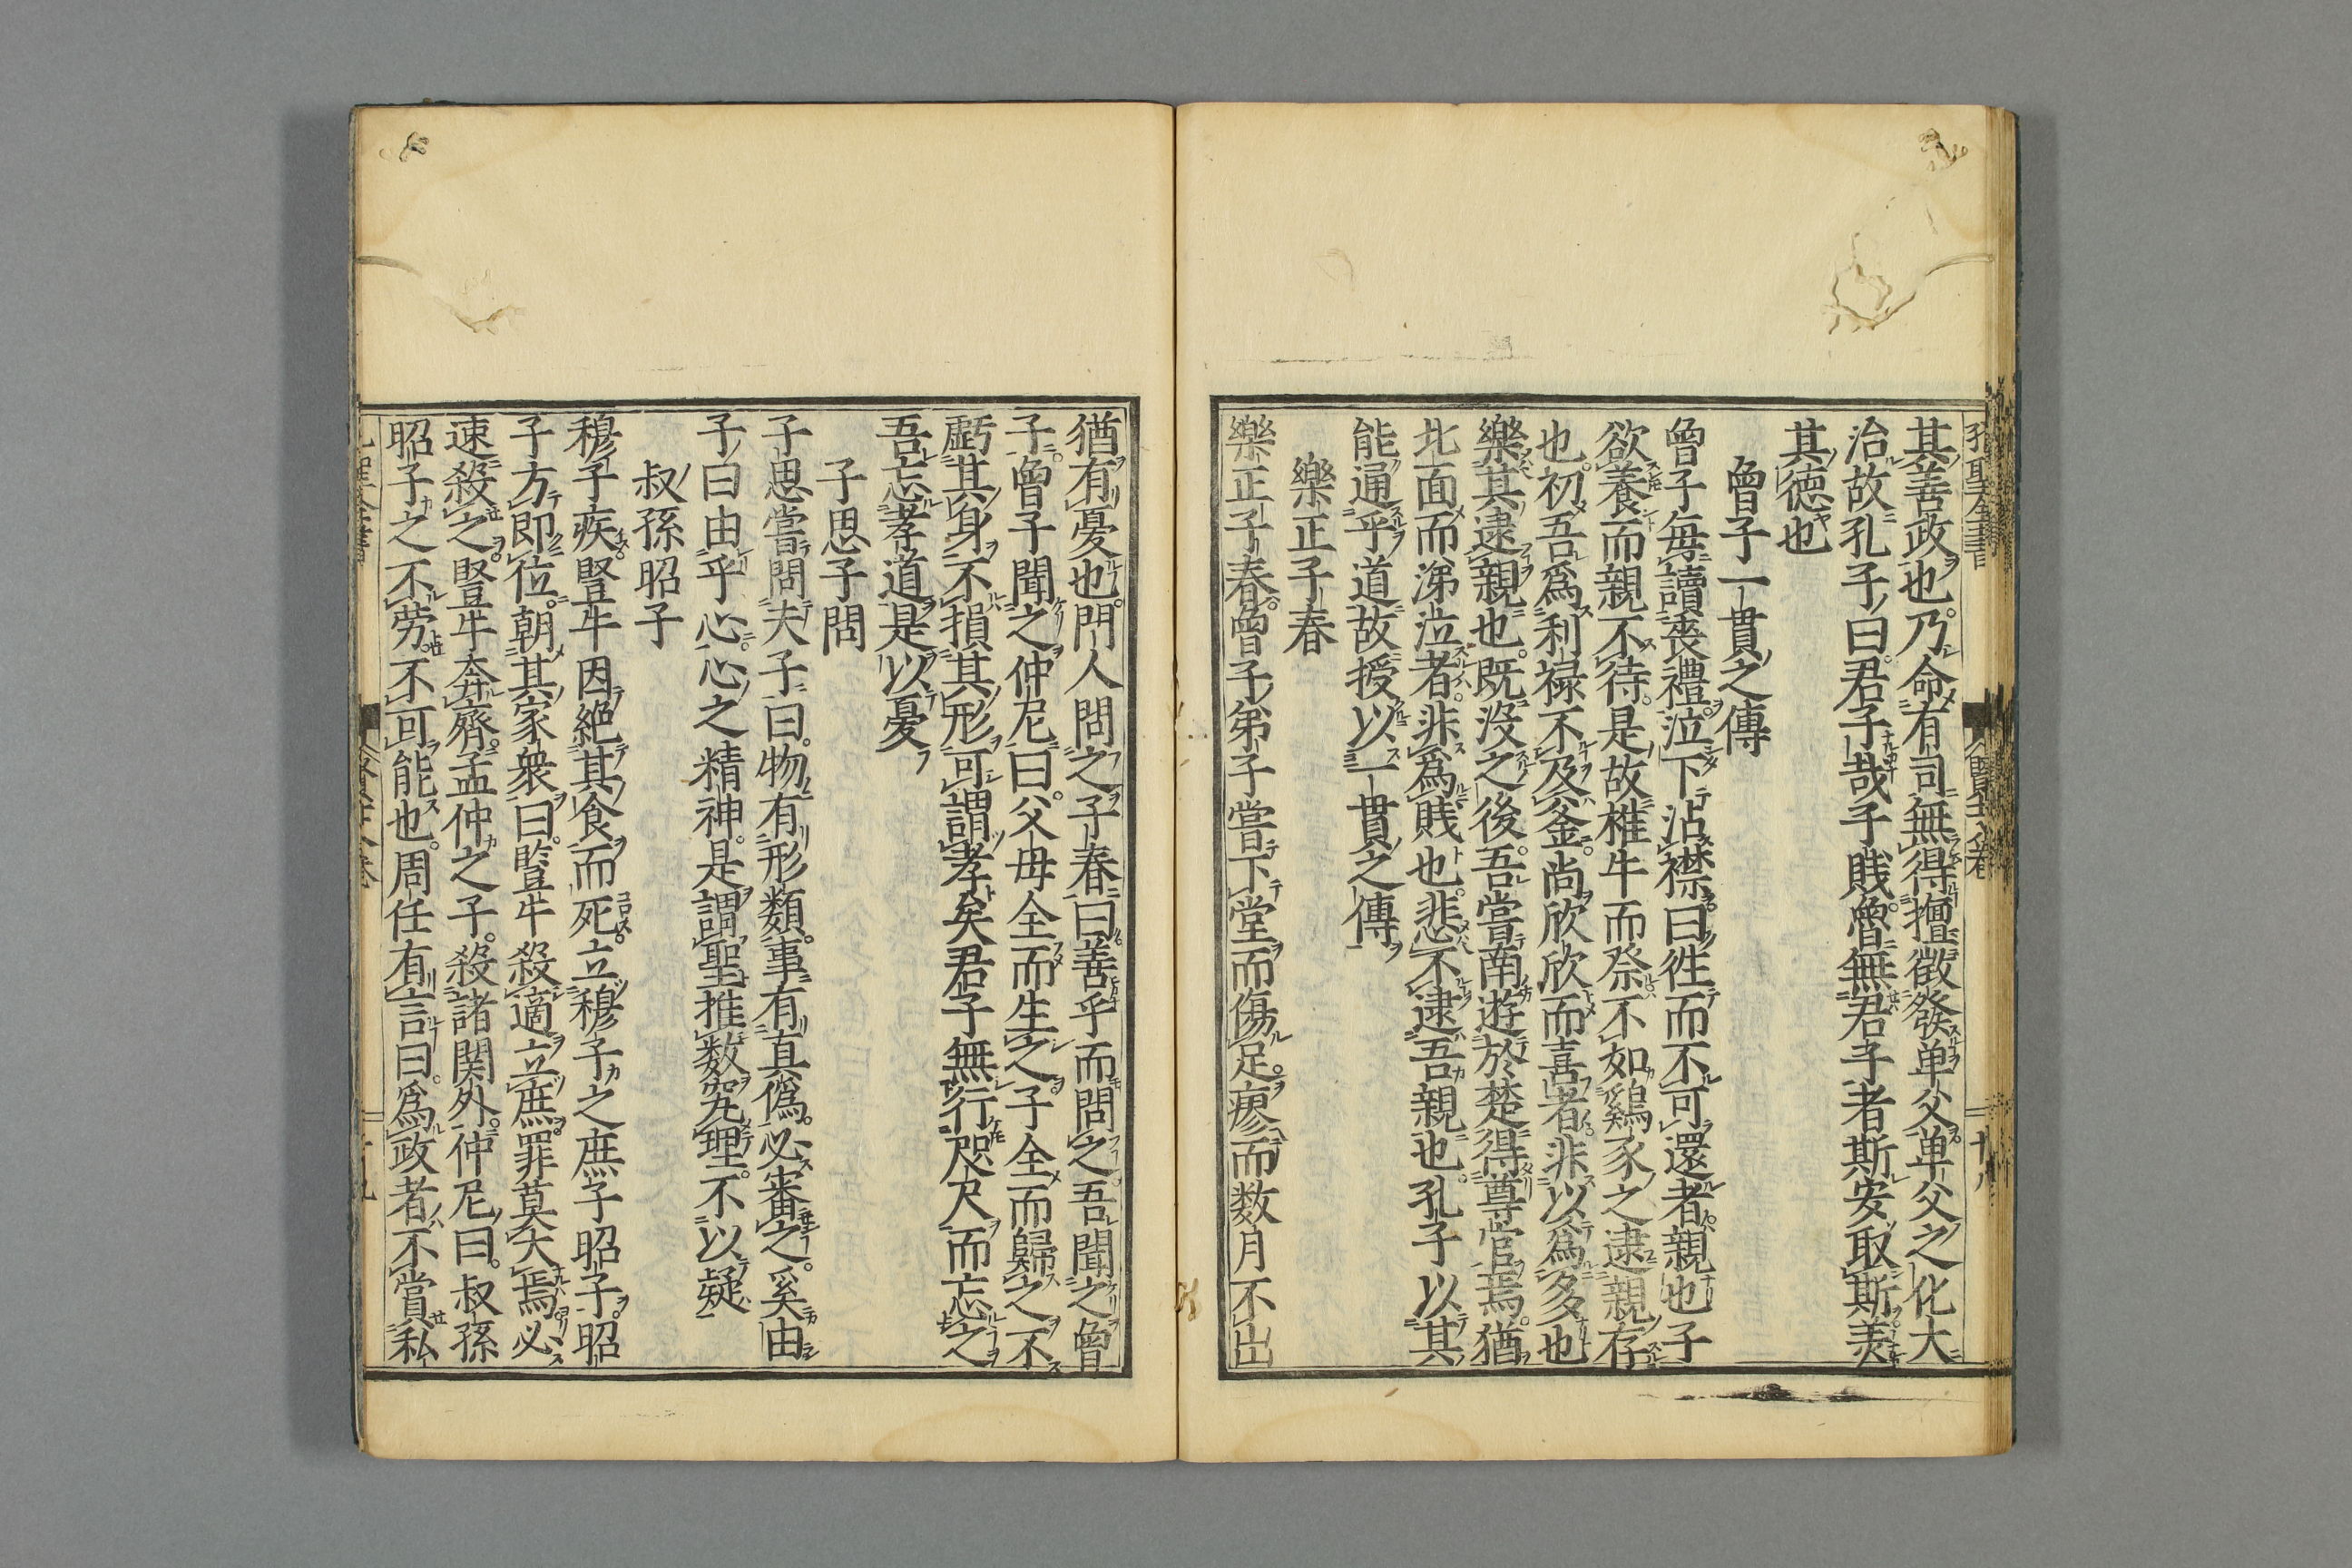 其善政也乃命有司無得擅徴發単父単父之化大
治故孔子曰君子哉子賎魯無君子者斯安取斯羙
其徳也
曽子一貫之傳
曽子毎讀喪禮泣下沾襟曰徃而不可還者親也子
欲養而親不待是故椎牛而祭不如鷄豕之逮親存
也初吾爲利禄不及釜尚欣欣而喜者非以爲多也
樂其逮親也既没之後吾嘗南遊於楚得尊官焉猶
北面而涕泣者非爲賎也悲不逮吾親也孔子以其
能通乎道故授以一貫之傳
樂正子春
樂正子春曽子弟子嘗下堂而傷足瘳而数月不出
猶有憂也門人問之子春曰善乎而問之吾聞之曽
子曽子聞之仲尼曰父母全而生之子全而歸之不
虧其身不損其形可謂孝矣君子無行咫尺而忘之
吾忘孝道是以憂
子思子問
子思嘗問夫子曰物有形類事有真偽必審之奚由
子曰由乎心心之精神是謂聖推数究理不以疑
叔孫昭子
穆子疾豎牛因絶其食而死立穆子之庶子昭子昭
子方即位朝其家衆曰豎牛殺適立庶罪莫大焉必
速殺之豎牛奔齊孟仲之子殺諸関外仲尼曰叔孫
昭子之不劳不可能也周任有言曰爲政者不賞私